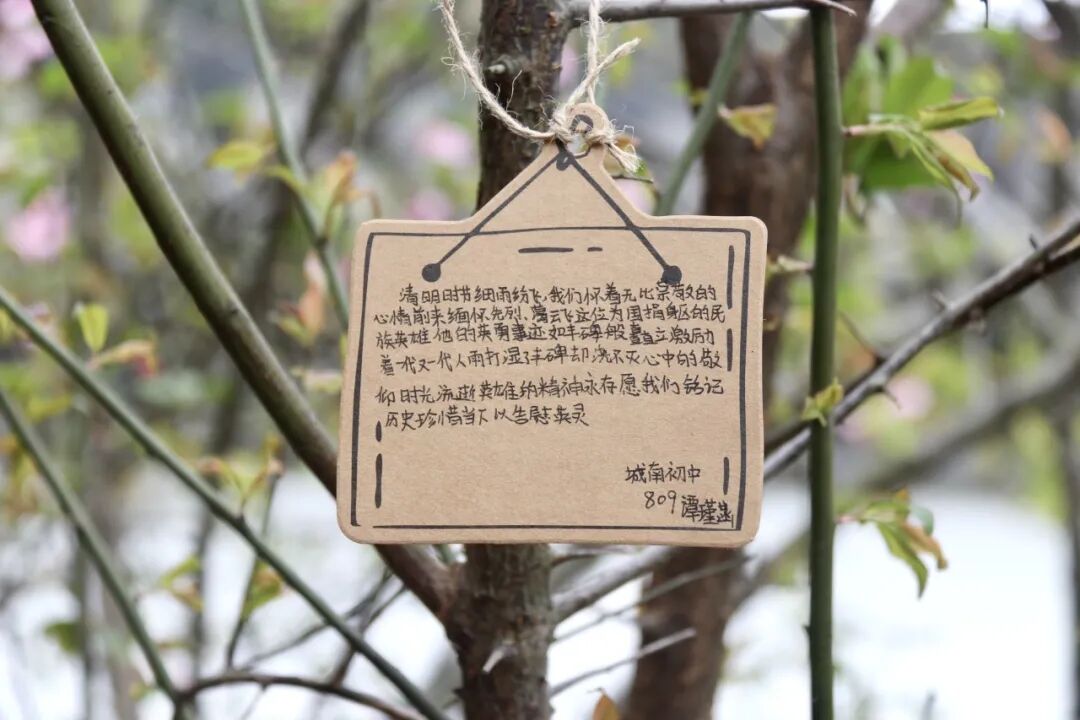 清明时节细雨纷飞,我们怀着无比崇敬的
心情前来缅怀先烈、滿云飞这位为国捐身区的民
族英雄他的英勇事迹如丰碑般矗立激励
着一代又一代人雨打湿了丰碑却洗不灭心中的敬
仰时光流逝英雄纳精神永存愿我们铭记
历史珍惜当下以告慰英灵
城南初中
809 谭瑾